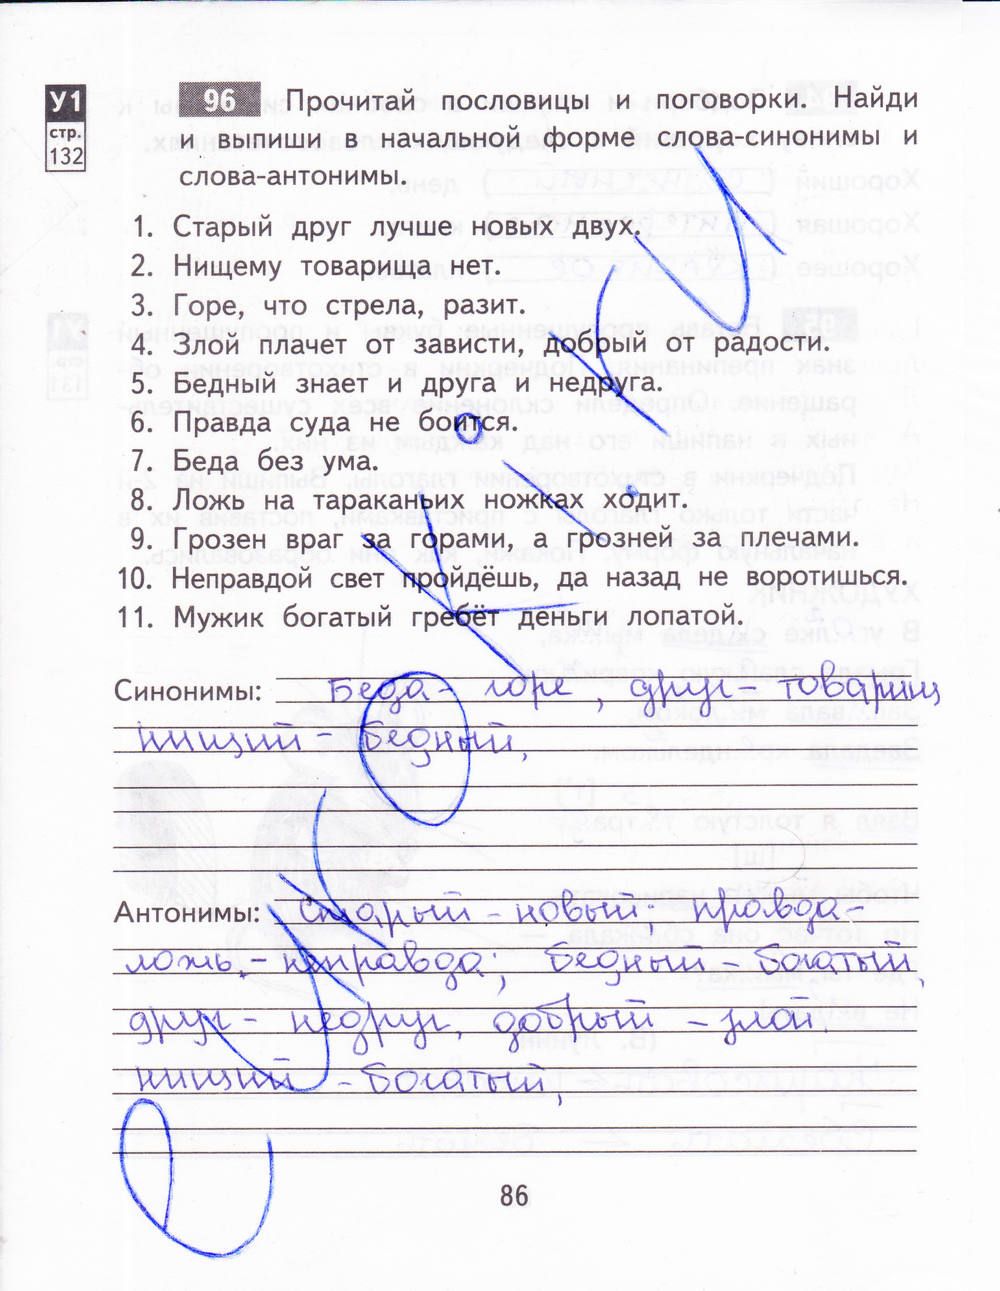 У1
стр.
132
96 Прочитай пословицы и поговорки. Найди
и выпиши в начальной форме слова-синонимы и
слова-антонимы.
1. Старый друг лучше новых двух.
2. Нищему товарища нет.
3. Горе, что стрела, разит.
4. Злой плачет от зависти, добрый от радости.
5. Бедный знает и друга и недруга.
6. Правда суда не боится.
7. Беда без ума.
8. Ложь на тараканьих ножках ходит.
9. Грозен враг за горами, а грозней за плечами.
10. Неправдой свет пройдёшь, да назад не воротишься.
11. Мужик богатый гребёт деньги лопатой.
Синонимы: Беда - горе, друг - товарищ
нищий - бедный,
Антонимы: Старый - новый; правда -
ложь, - неправда; бедный - богатый,
друг - недруг, добрый - злой,
нищий - богатый,
86